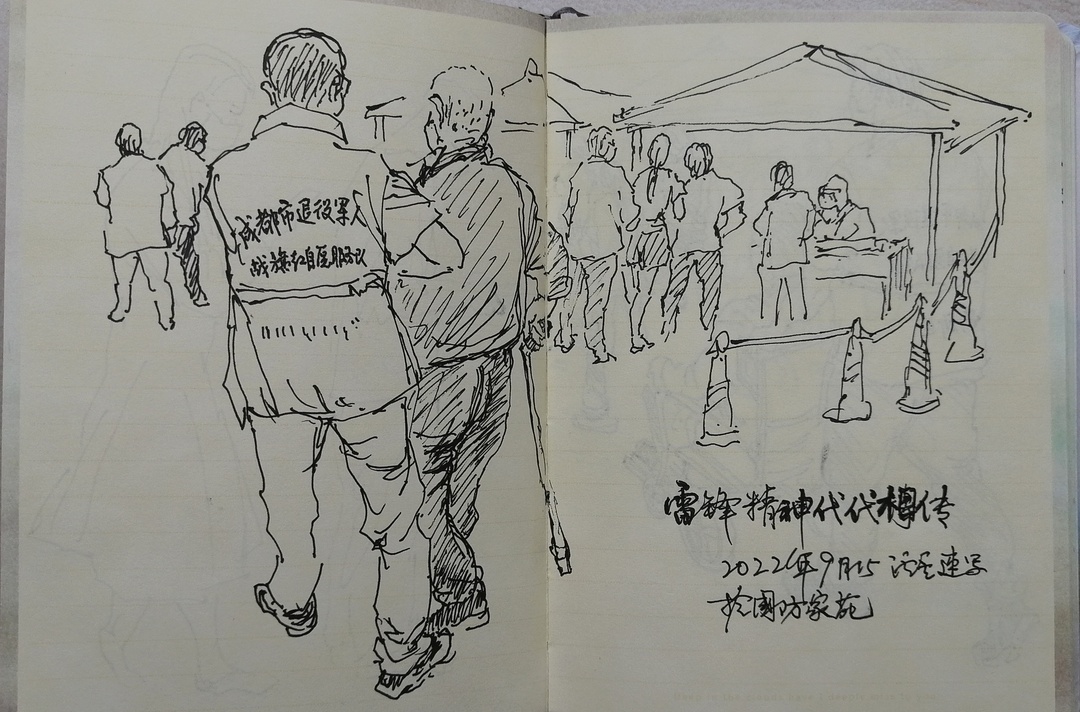 成都市退役军人
战旗红自愿服务队
雷锋精神代代相传
2022年9月15 速写
於國防家苑